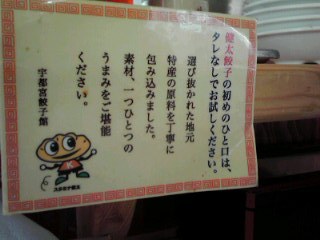 健太餃子の初めのひと口は、
タレなしでお試しください。
選び抜かれた地元
特産の原料を丁寧に
包み込みました。
素材、一つひとつの
うまみをご堪能
ください。
宇都宮餃子館